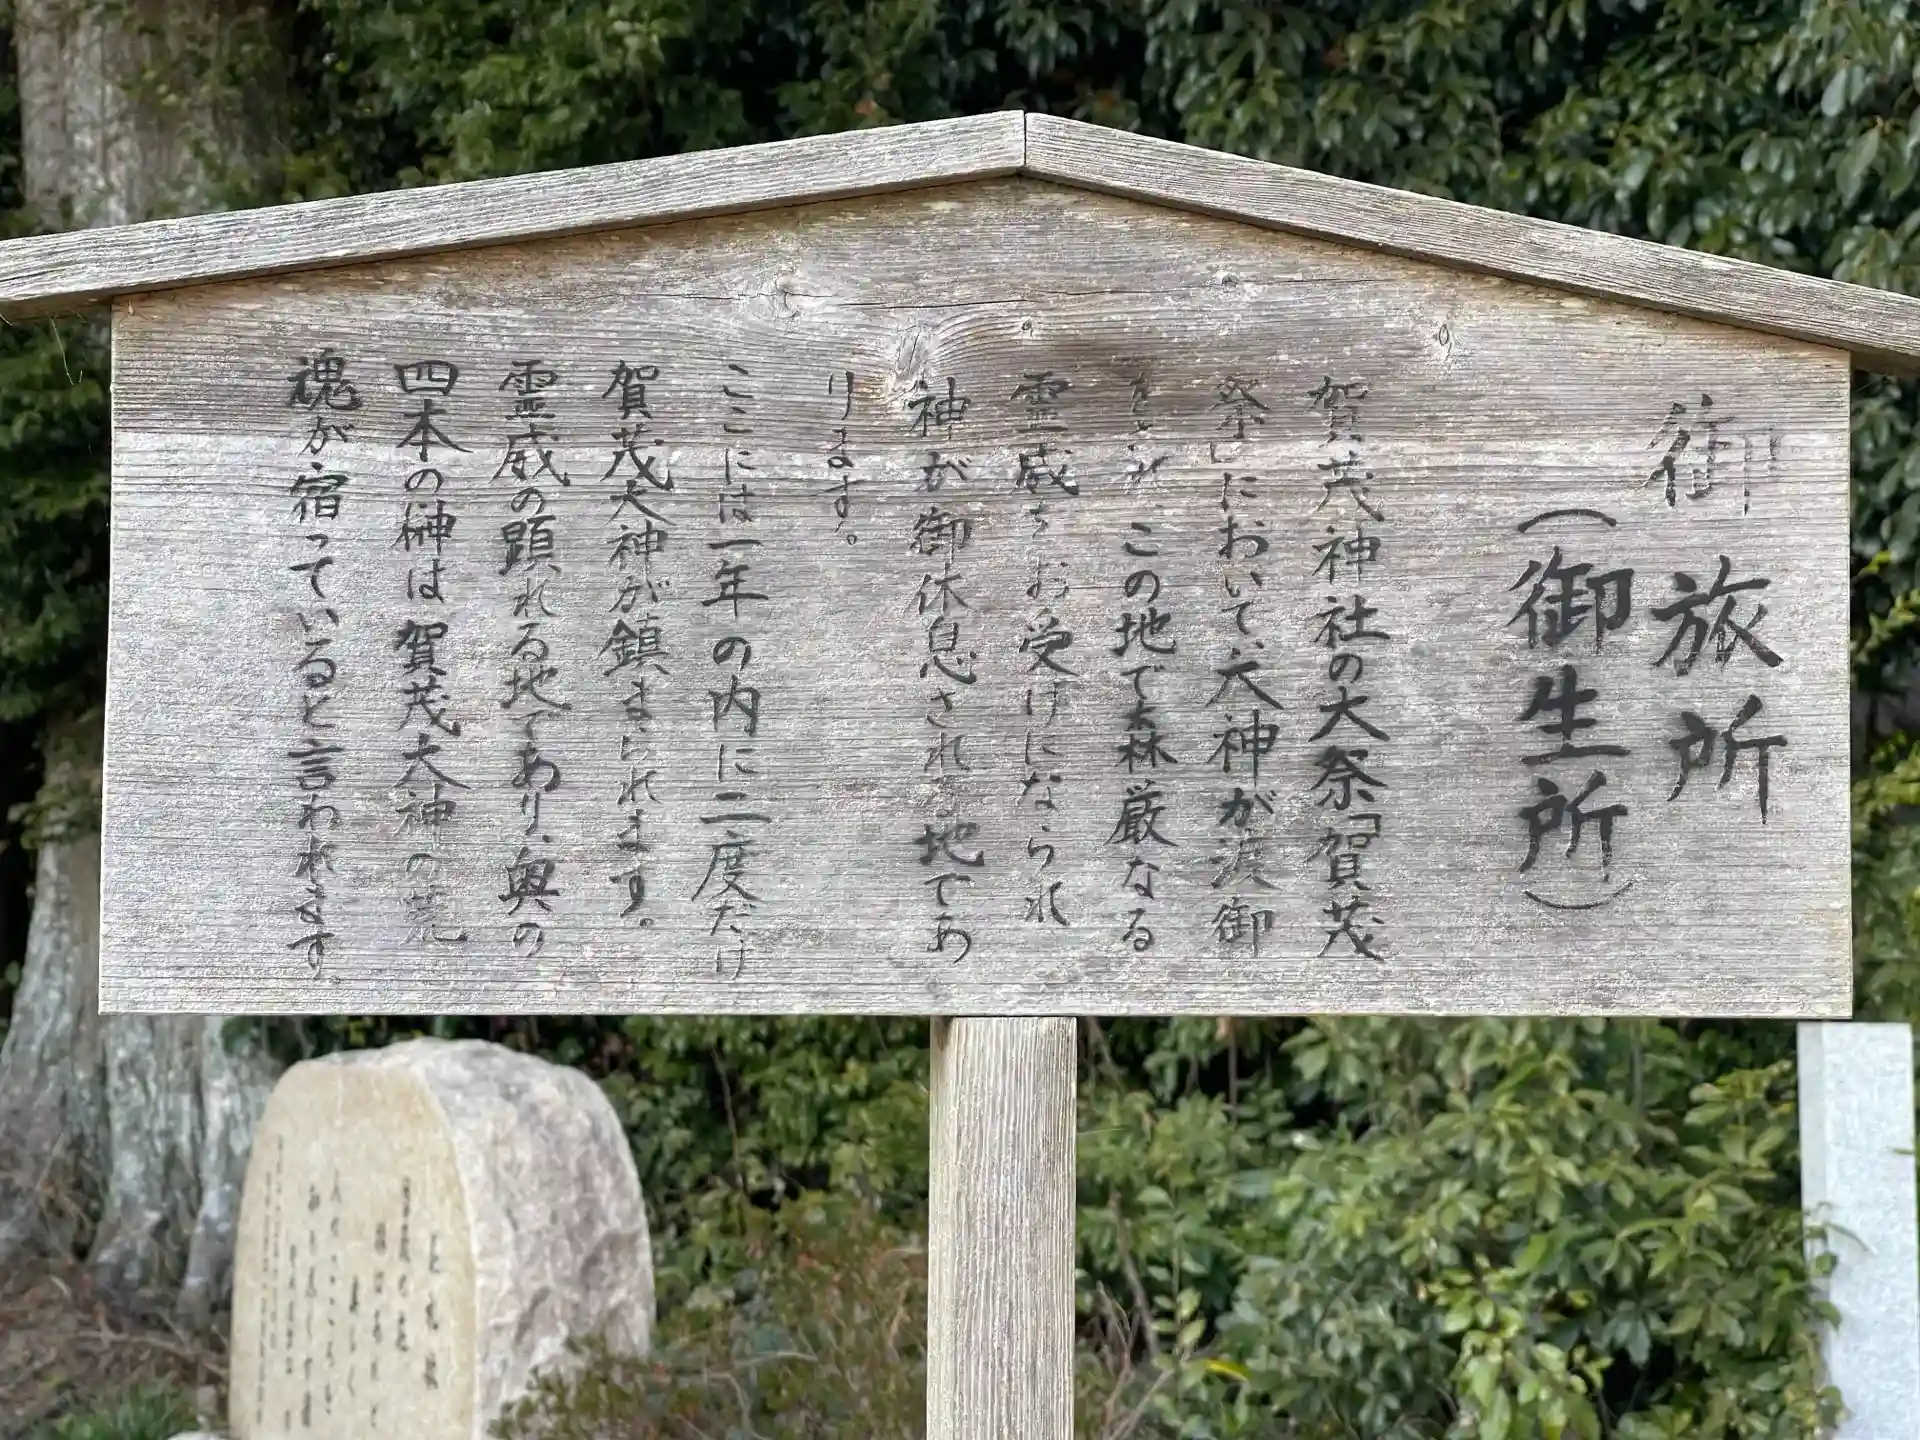 御旅所
（御生所）
賀茂神社の大祭「賀茂
祭」において、大神が渡御
をされ、この地で森厳なる
霊威をお受けになられ
神が御休息される地であ
ります。
ここには一年の内に二度だけ
賀茂大神が鎮まられます。
霊威の顕れる地であり、奥の
四本の榊は賀茂大神の荒
魂が宿っていると言われます。